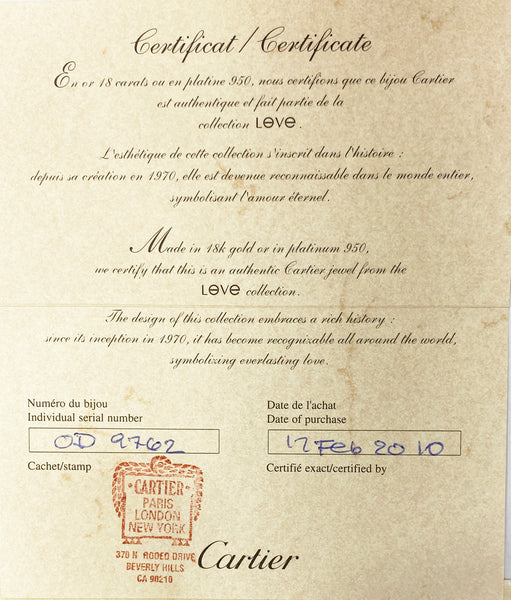 Certificat / Certificate
En or 18 carats ou en platine 950, nous certifions que ce bijou Cartier
est authentique et fait partie de la
collection LOVE.
L'esthétique de cette collection s'inscrit dans l'histoire :
depuis sa création en 1970, elle est devenue reconnaissable dans le monde entier,
symbolisant l'amour éternel.
Made in 18k gold or in platinum 950,
we certify that this is an authentic Cartier jewel from the
LOVE collection.
The design of this collection embraces a rich history :
since its inception in 1970, it has become recognizable all around the world,
symbolizing everlasting love.
Numéro du bijou
Individual serial number
OD 9762
Date de l'achat
Date of purchase
17 Feb 2010
Cachet/stamp
Certifié exact/certified by
CARTIER
PARIS
LONDON
NEW YORK
370 N RODEO DRIVE
BEVERLY HILLS
CA 90210
Cartier